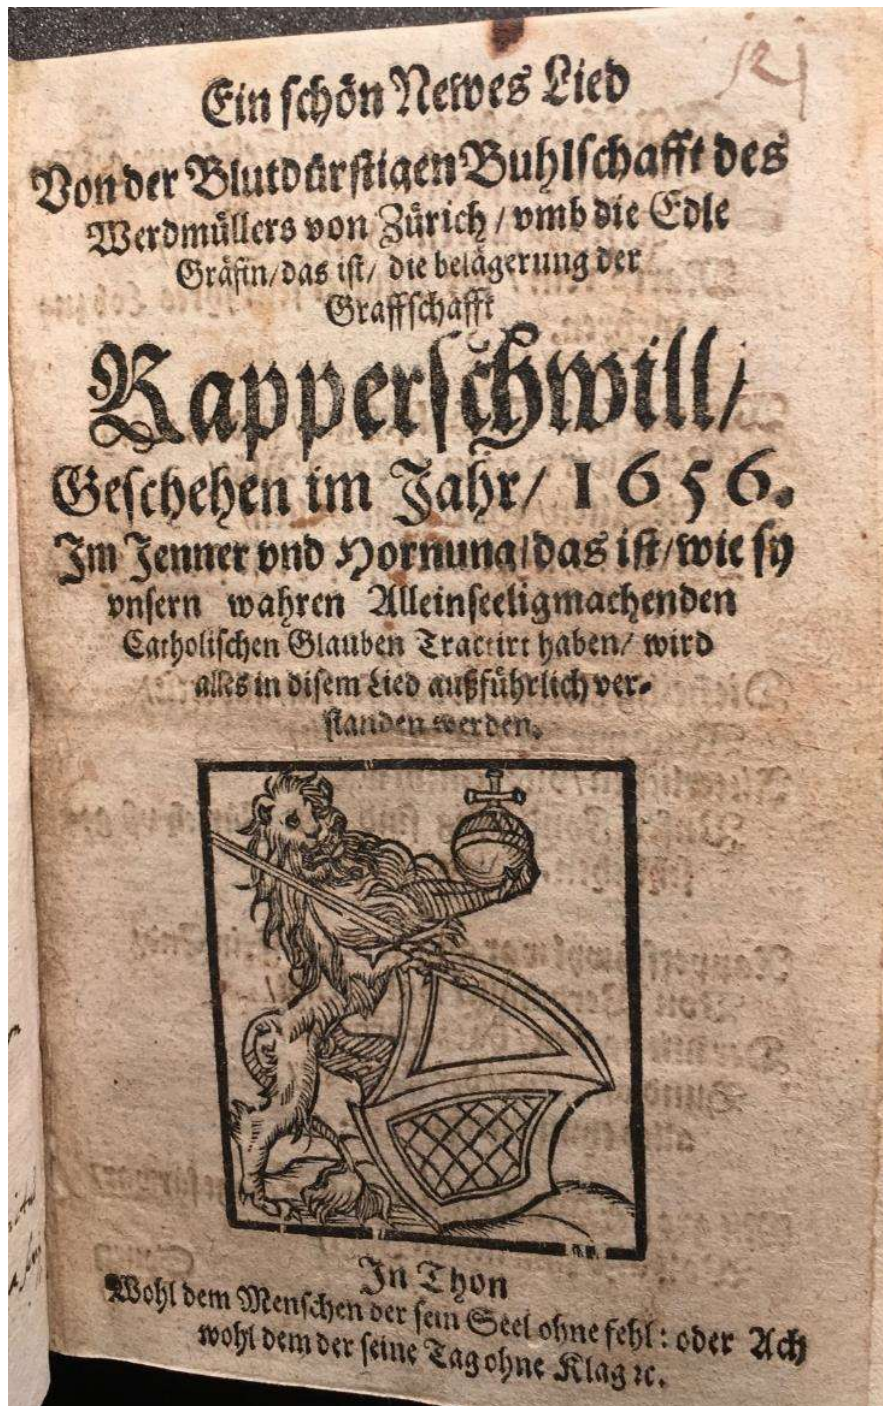 Ein schön Newes Lied
Von der Blutdürstigen Buhlschafft des
Werdmüllers von Zürich / vmb die Edle
Gräfin / das ist / die belägerung der
Graffschafft
Rapperschwill /
Geschehen im Jahr / 1656.
Im Jenner vnd Hornung / das ist / wie sy
vnsern wahren Alleinseeligmachenden
Catholischen Glauben Tractirt haben / wird
alles in disem Lied außführlich ver-
standen werden.
In Thon
Wohl dem Menschen der sein Seel ohne fehl: oder Ach
wohl dem der seine Tag ohne Klag ꝛc.